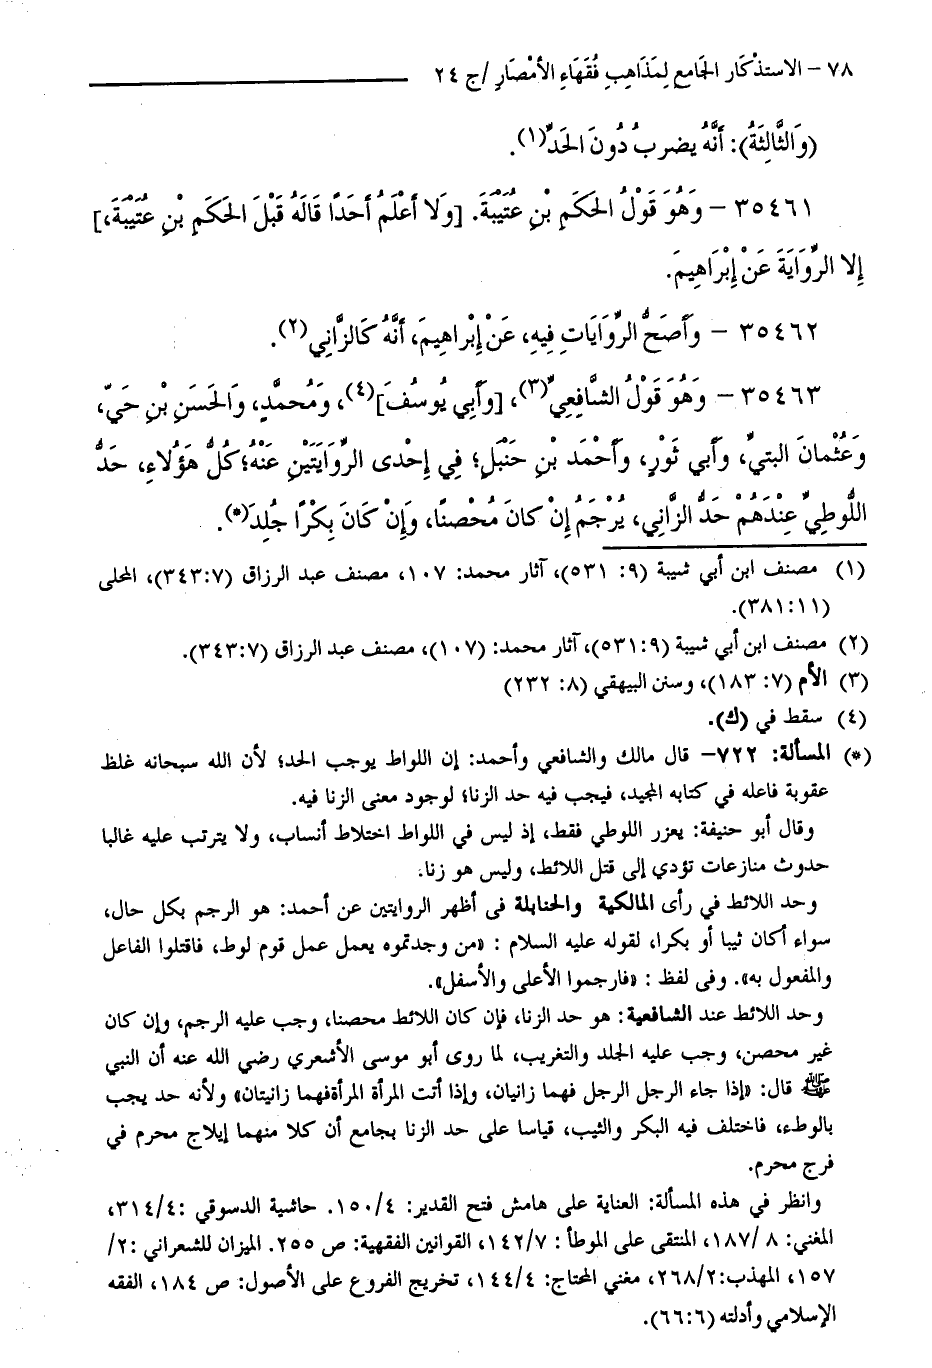 ٧٨ – الاستذْكَار الجَامع لِمَذَاهِبِ فُقَهَاءِ الأمْصَارِ /ج ٢٤
(وَالثَّالِثَةُ): أَنَّهُ يضربُ دُونَ الحَدِّ(١).
٣٥٤٦١ – وَهُوَ قَوْلُ الحَكَمِ بْنِ عُتَيْبَةَ. [وَلَا أعْلَمُ أحَدًا قَالَهُ قَبْلَ الحَكَمِ بْنِ عُتَيْبَةَ،]
إِلا الرِّوَايَةَ عَنْ إِبْرَاهِيمَ.
٣٥٤٦٢ – وَأَصَحُّ الرِّوَايَاتِ فِيهِ، عَنْ إِبْرَاهِيمَ، أنَّهُ كَالزَّانِي(٢).
٣٥٤٦٣ – وَهُوَ قَوْلُ الشَّافِعِيِّ(٣)، [وَأَبِي يُوسُفَ](٤)، وَمُحمَّدٍ، وَالحَسَنِ بْنِ حَيّ،
وَعُثْمانَ البتيِّ، وَأَبي ثَوْرٍ، وَأَحْمَدَ بْنِ حَنْبَلٍ؛ فِي إِحْدى الرِّوَايَتَيْنِ عَنْهُ؛ كُلُّ هَؤُلاءِ، حَدُّ
اللُّوطِيِّ عِنْدَهُمْ حَدُّ الزَّانِي، يُرْجَمُ إِنْ كانَ مُحْصنًا، وَإِنْ كَانَ بِكْرًا جُلِدَ(*).
(١) مصنف ابن أبي شيبة (٩: ٥٣١)، آثار محمد: ١٠٧، مصنف عبد الرزاق (٧:٣٤٣)، المحلى
(١١:٣٨١).
(٢) مصنف ابن أبي شيبة (٩:٥٣١)، آثار محمد: (١٠٧)، مصنف عبد الرزاق (٧:٣٤٣).
(٣) الأم (٧: ١٨٣)، وسنن البيهقي (٨: ٢٣٢)
(٤) سقط في (ك).
(*) المسألة: ٧٢٢– قال مالك والشافعي وأحمد: إن اللواط يوجب الحد؛ لأن الله سبحانه غلظ
عقوبة فاعله في كتابه المجيد، فيجب فيه حد الزنا؛ لوجود معنى الزنا فيه.
وقال أبو حنيفة: يعزر اللوطي فقط، إذ ليس في اللواط اختلاط أنساب، ولا يترتب عليه غالبا
حدوث منازعات تؤدي إلى قتل اللائط، وليس هو زنا.
وحد اللائط في رأى المالكية والحنابلة فى أظهر الروايتين عن أحمد: هو الرجم بكل حال،
سواء أكان ثيبا أو بكرا، لقوله عليه السلام : «من وجدتموه يعمل عمل قوم لوط، فاقتلوا الفاعل
والمفعول به». وفى لفظ : «فارجموا الأعلى والأسفل».
وحد اللائط عند الشافعية: هو حد الزنا، فإن كان اللائط محصنا، وجب عليه الرجم، وإن كان
غير محصن، وجب عليه الجلد والتغريب، لما روى أبو موسى الأشعري رضي الله عنه أن النبي
ﷺ قال: «إذا جاء الرجل الرجل فهما زانيان، وإذا أتت المرأة المرأةفهما زانيتان» ولأنه حد يجب
بالوطء، فاختلف فيه البكر والثيب، قياسا على حد الزنا بجامع أن كلا منهما إيلاج محرم في
فرج محرم.
وانظر في هذه المسألة: العناية على هامش فتح القدير: ١٥٠/٤. حاشية الدسوقي :٣١٤/٤،
المغني: ١٨٧/٨، المنتقى على الموطأ : ١٤٢/٧، القوانين الفقهية: ص ٢٥٥. الميزان للشعراني :٢/
١٥٧، المهذب:٢٦٨/٢، مغني المحتاج: ١٤٤/٤، تخريج الفروع على الأصول: ص ١٨٤، الفقه
الإسلامي وأدلته (٦:٦٦).